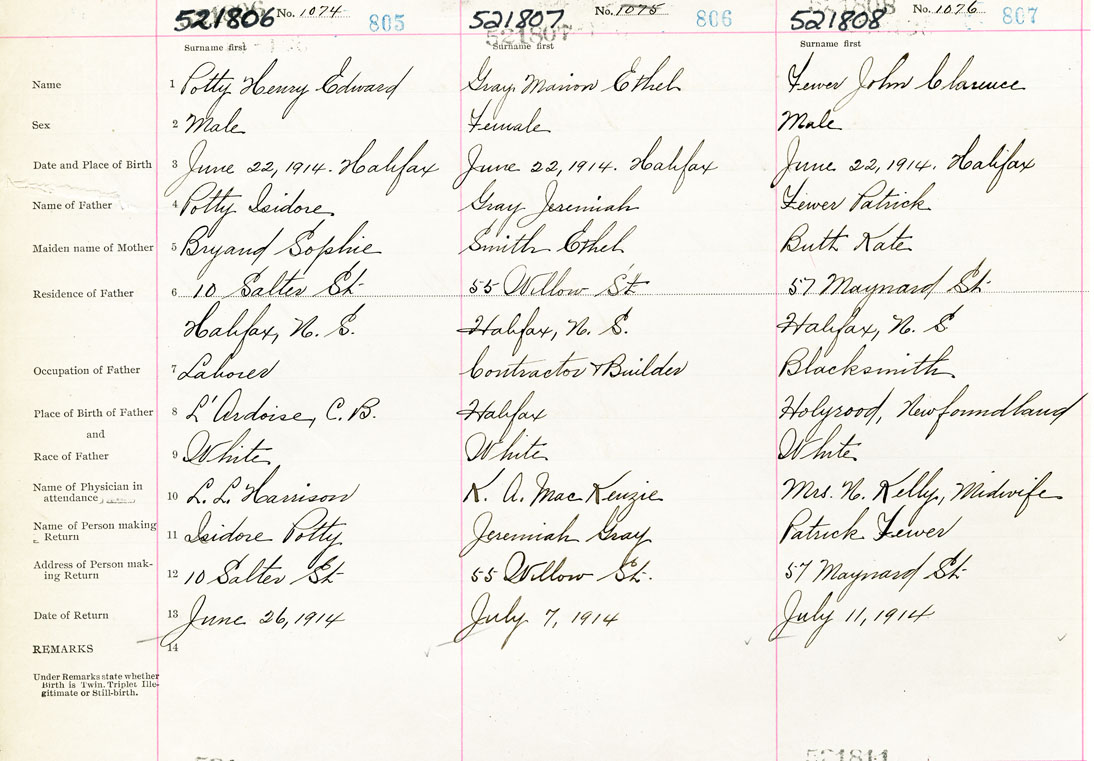 521806 No. 1074 805 521807 No. 1075 806 521808 No. 1076 807
Surname first Surname first Surname first
Name 1 Potty Henry Edward Gray Marion Ethel Fewer John Clarence
Sex 2 Male Female Male
Date and Place of Birth 3 June 22, 1914. Halifax June 22, 1914. Halifax June 22, 1914. Halifax
Name of Father 4 Potty Isidore Gray Jeremiah Fewer Patrick
Maiden name of Mother 5 Bryand Sophie Smith Ethel Butt Kate
Residence of Father 6 10 Salter St 55 Willow St 57 Maynard St
Halifax, N. S. Halifax, N. S. Halifax, N. S
Occupation of Father 7 Laborer Contractor & Builder Blacksmith
Place of Birth of Father 8 L'Ardoise, C. B. Halifax Holyrood, Newfoundland
and
Race of Father 9 White White White
Name of Physician in
attendance 10 L. L. Harrison K. A. MacKenzie Mrs. N. Kelly, Midwife
Name of Person making
Return 11 Isidore Potty Jeremiah Gray Patrick Fewer
Address of Person mak-
ing Return 12 10 Salter St 55 Willow St. 57 Maynard St
Date of Return 13 June 26, 1914 July 7, 1914 July 11, 1914
REMARKS 14
Under Remarks state whether
Birth is Twin, Triplet Ille-
gitimate or Still-birth.